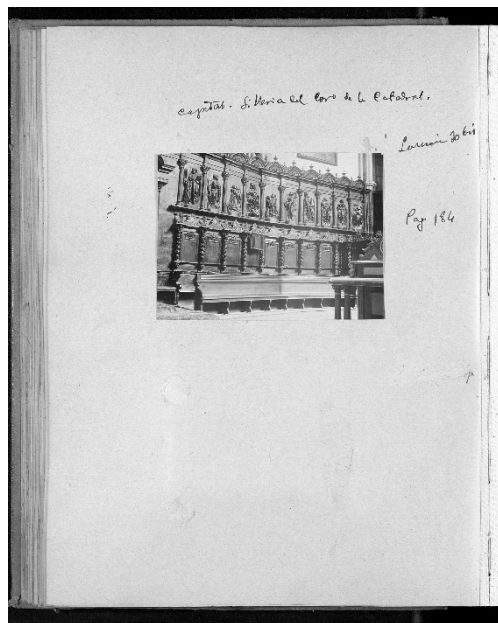 Sillería del Coro de la Catedral.
Lámina 30 bis
Pag 184